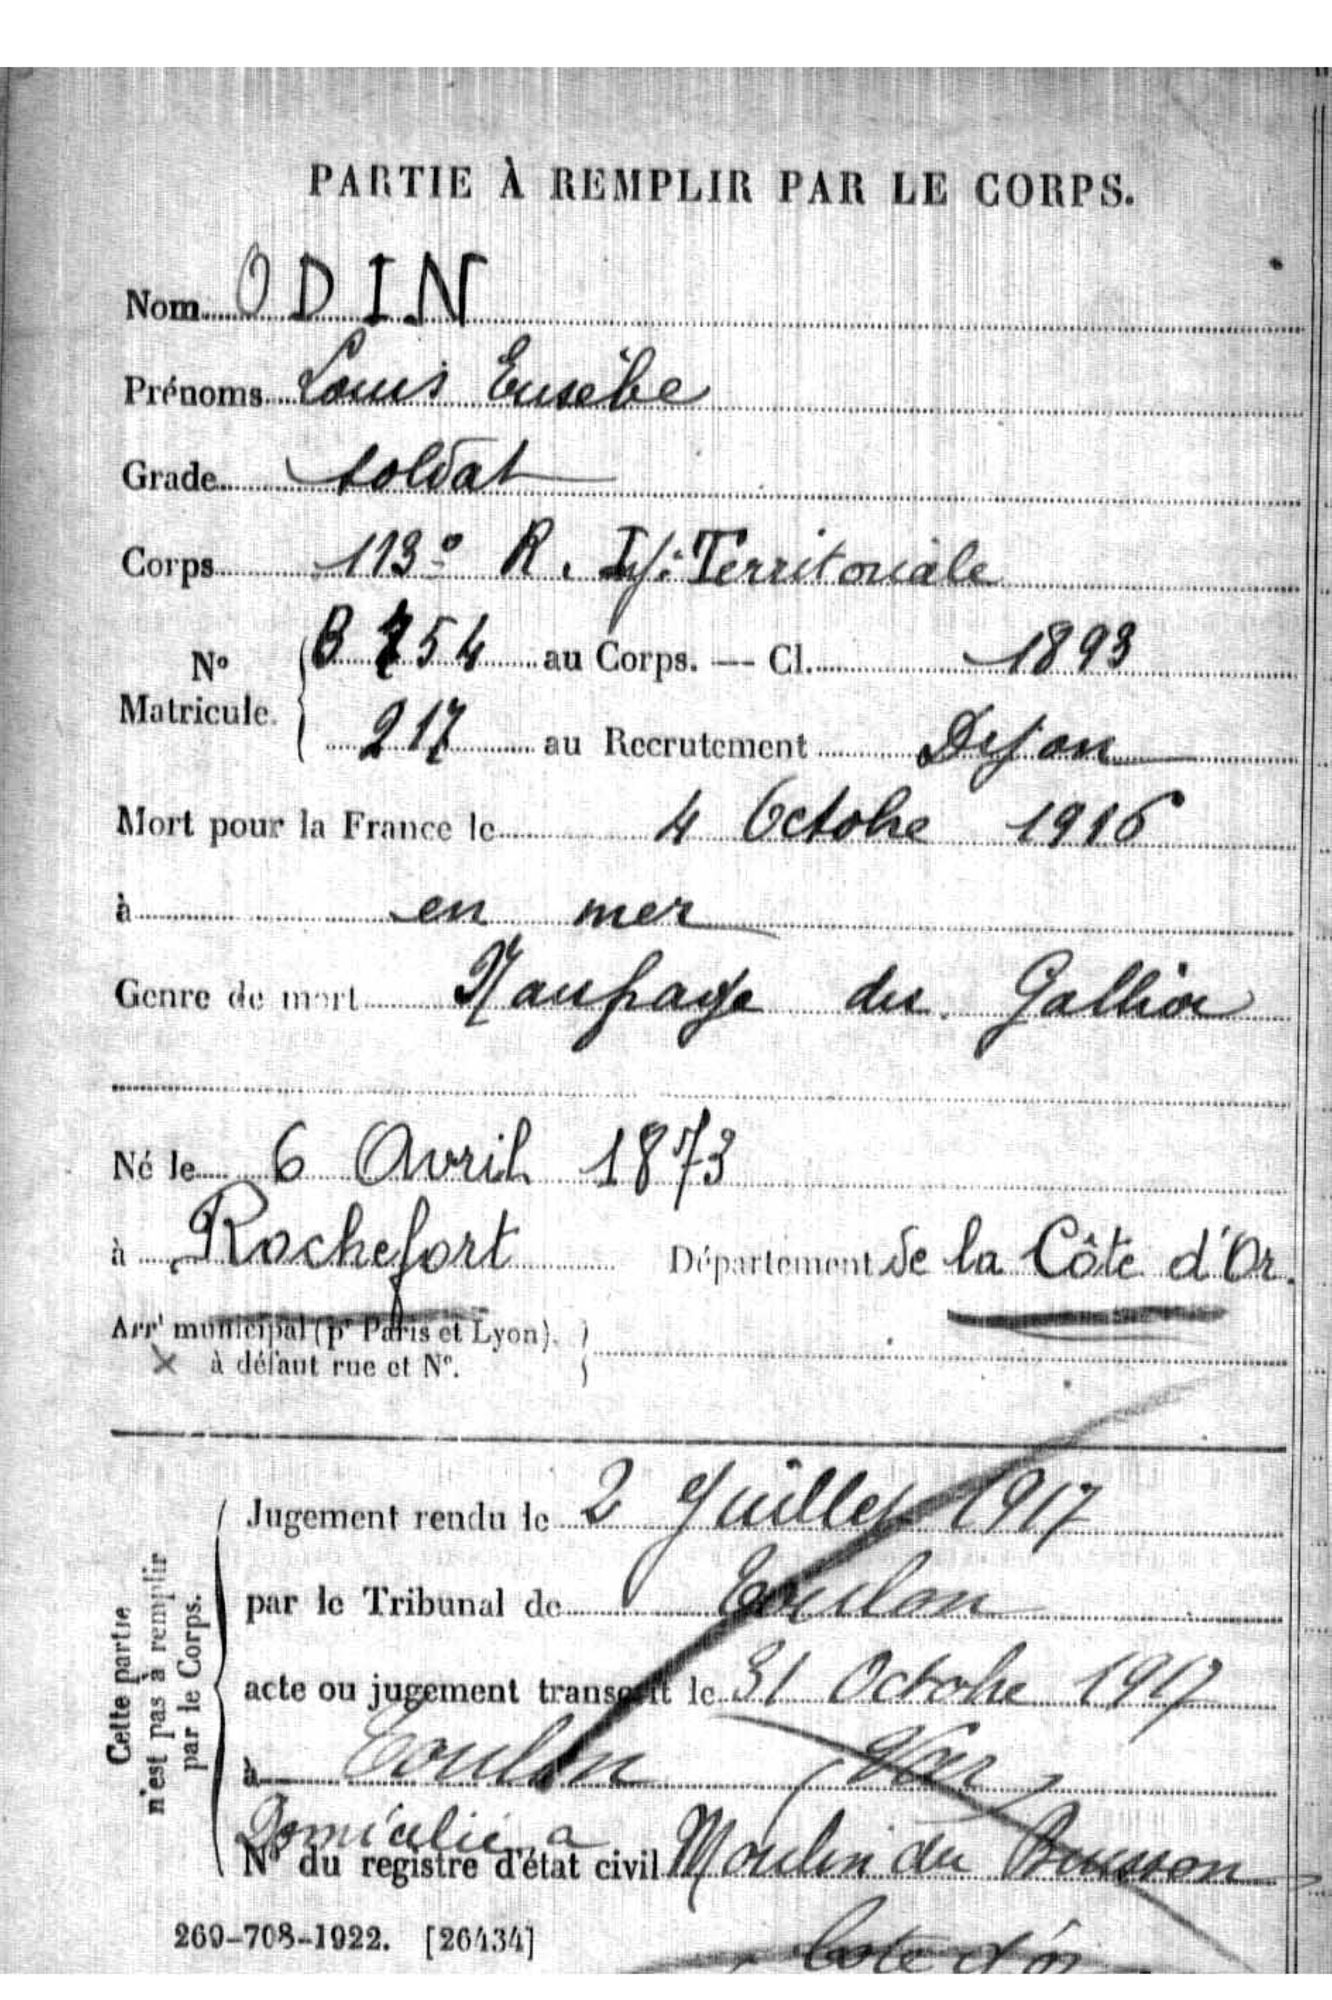 PARTIE À REMPLIR PAR LE CORPS.
Nom ODIN
Prénoms Louis Eusèbe
Grade soldat
Corps 113e R. Inf: Territoriale
B 754 au Corps. — Cl. 1893
No
Matricule.
217 au Recrutement Dijon
Mort pour la France le 4 Octobre 1916
à en mer
Genre de mort Naufrage du Gallia
Né le 6 Avril 1873
à Rochefort Département de la Côte d'Or.
Arrt municipal (pr Paris et Lyon),
à défaut rue et No.
Cette partie
n'est pas à remplir
par le Corps.
Jugement rendu le 2 Juillet 1917
par le Tribunal de Toulon
acte ou jugement transcrit le 31 Octobre 1917
à Toulon (Var)
Domicilié a
No du registre d'état civil Moulin du Buisson
Cote d'or
269-708-1922. [26434]